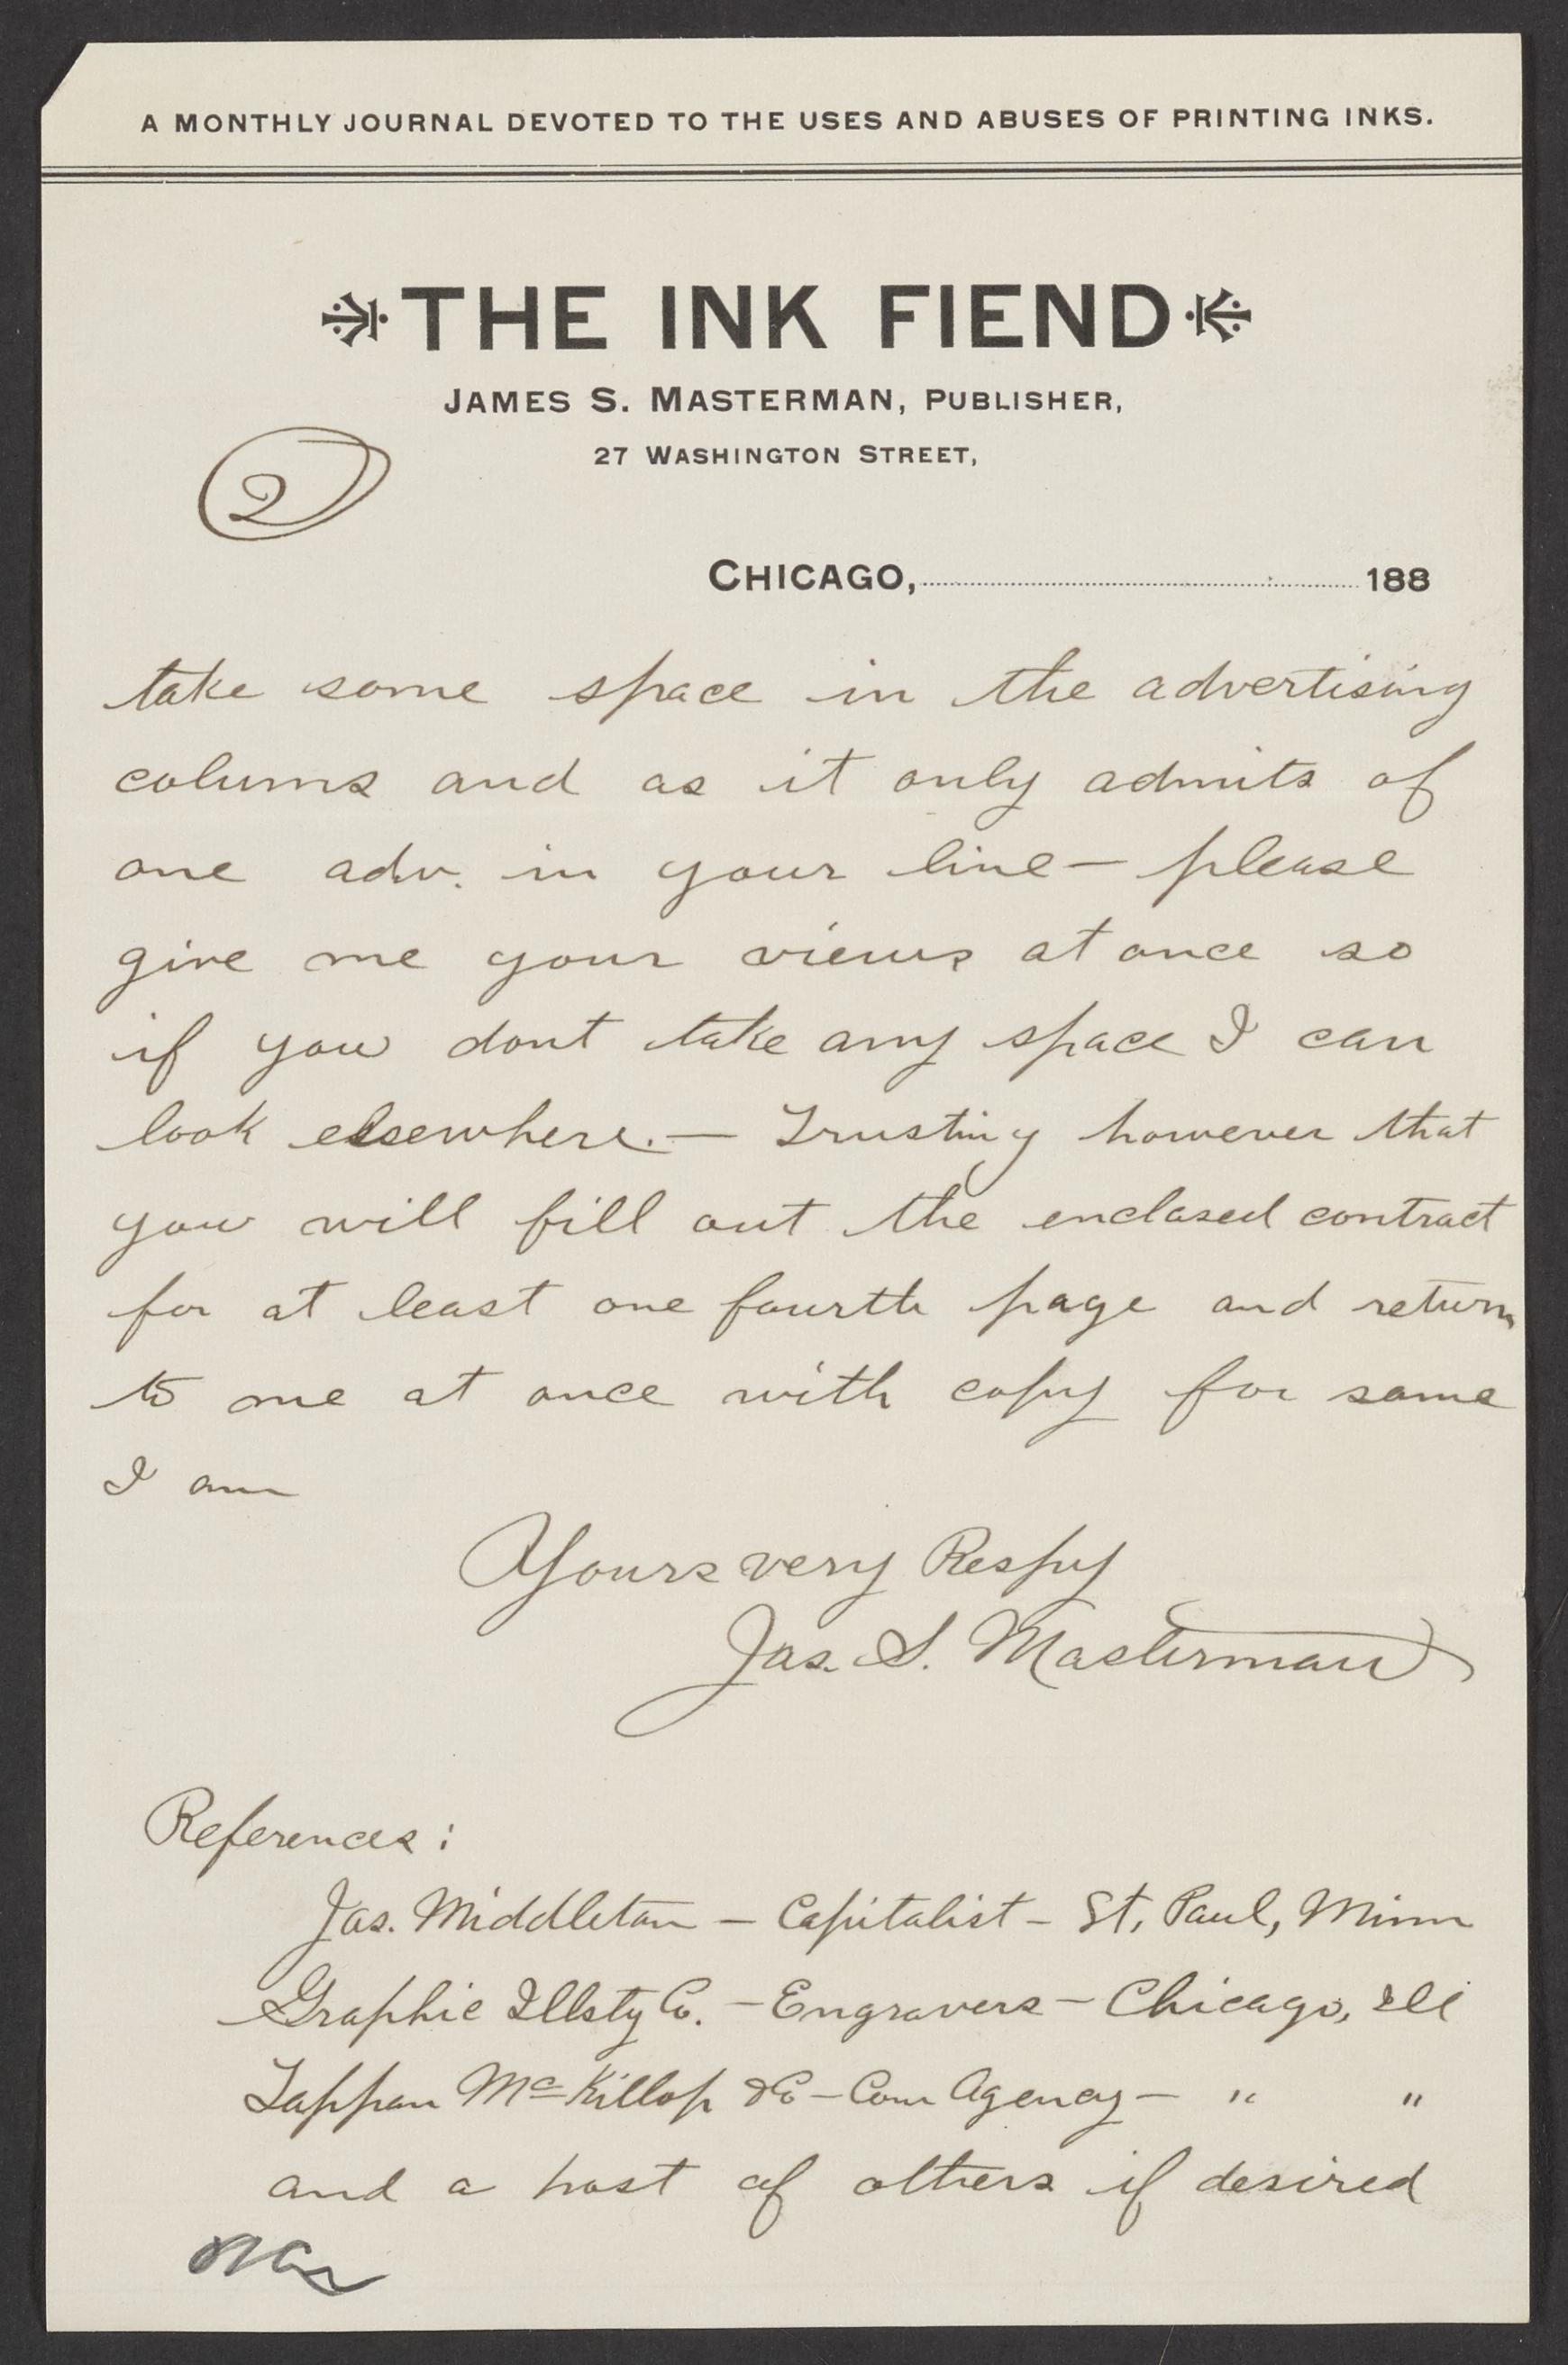 A MONTHLY JOURNAL DEVOTED TO THE USES AND ABUSES OF PRINTING INKS.
THE INK FIEND
JAMES S. MASTERMAN, PUBLISHER,
27 WASHINGTON STREET,
2
CHICAGO, 188
take some space in the advertising
colums and as it only admits of
one adv. in your line — please
give me your views at once so
if you dont take any space I can
look elsewhere. — Trusting however that
you will fill out the enclosed contract
for at least one fourth page and return
to me at once with copy for same
I am
Yours very Respy
Jas. S. Masterman
References:
Jas. Middleton — Capitalist — St, Paul, Minn
Graphic Illstg Co. — Engravers — Chicago, Ill
Tappan McKillop & Co — Com Agency — " "
and a host of others if desired